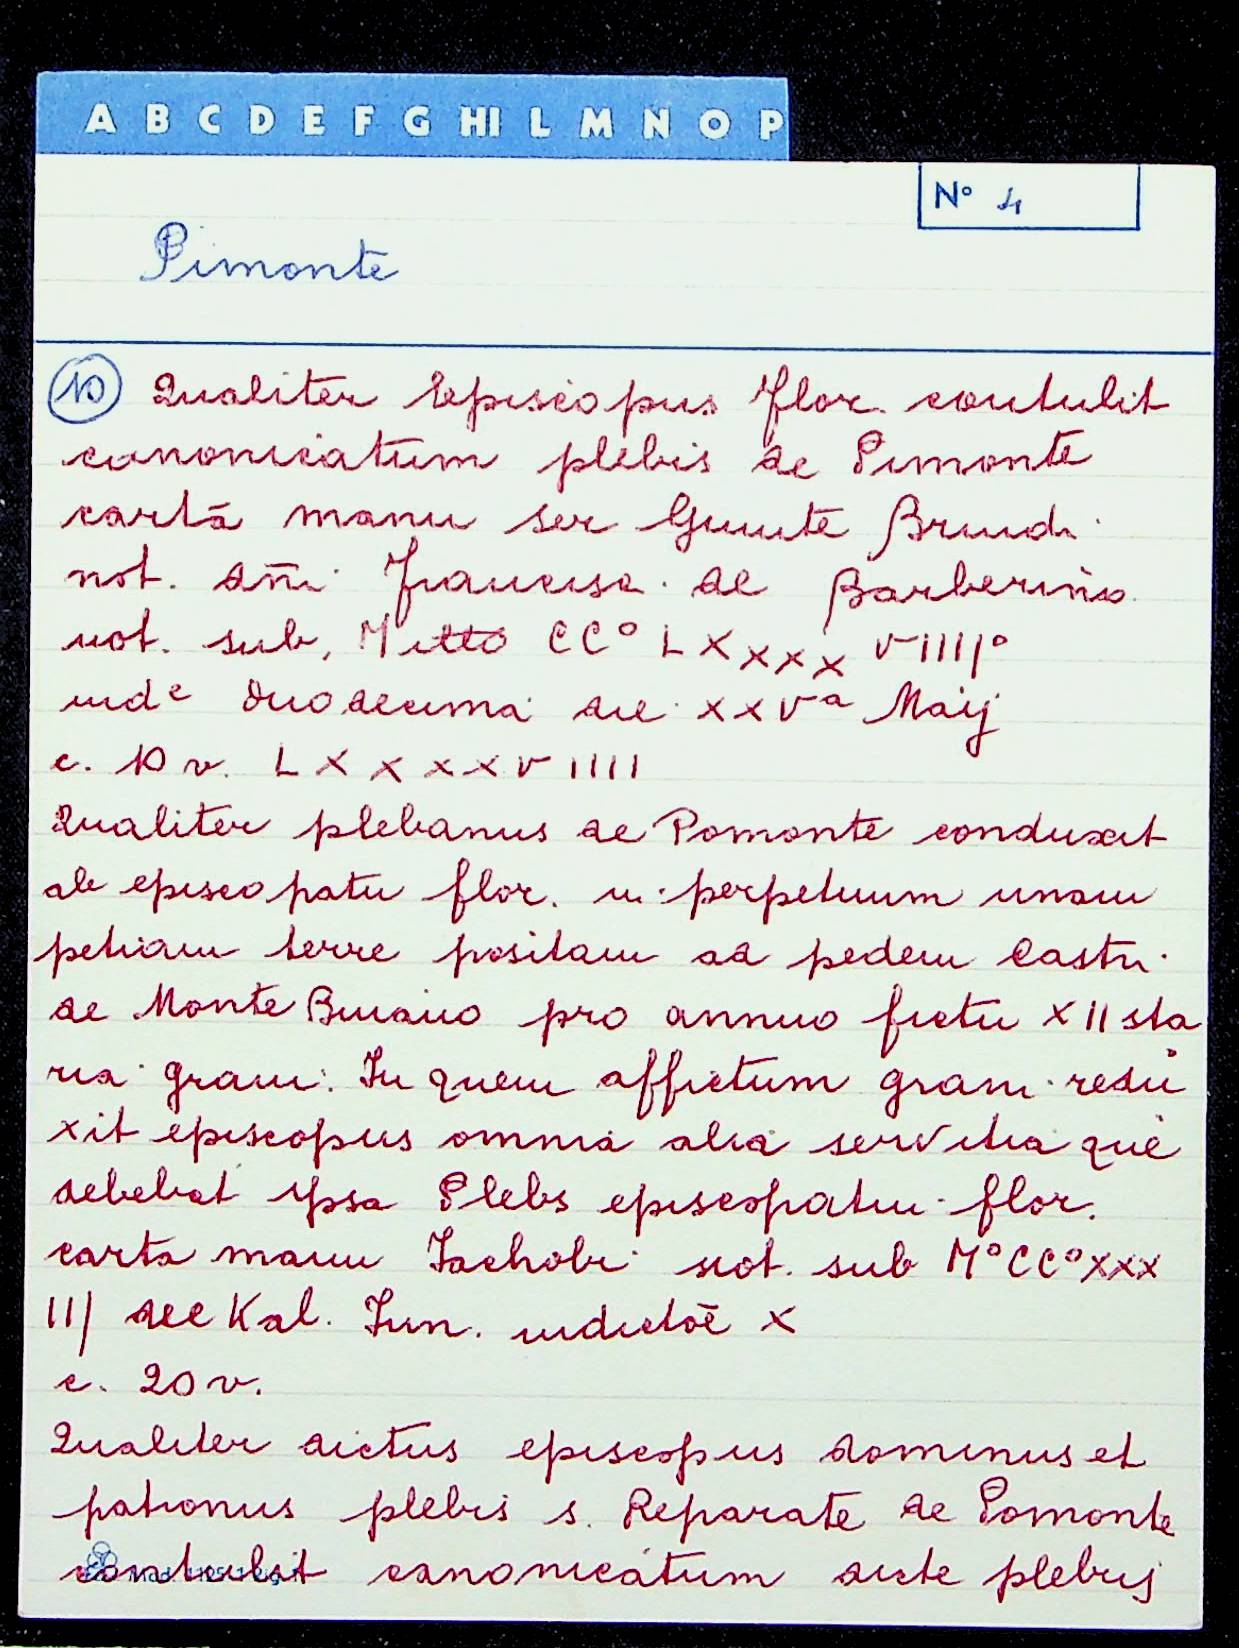 A B C D E F G HI L M N O P
N° 4
Pimonte
10 Qualiter Episcopus flor. contulit
canonicatum plebis de Pimonte
cartā manu ser Giunte
not. dñi Francisc. de Barberino
not. sub, Mitto CC° LXXXX VIIII°
indᵉ duodecima die XXVª Maij
c. 10 v. LXXXXVIIII
Qualiter plebanus de Pomonte conduxit
ab episcopatu flor. in perpetuum unam
petiam terre positam ad pedem Castri
de Monte Buiano pro annuo fictu XII sta
ria grani. In quem affictum grani redu
xit episcopus omnia alia servitia que
debebat ipsa Plebs episcopatui flor.
carta manu Jachobi not. sub M°CC°XXX
III die Kal. Jun. indictōē X
c. 20 v.
Qualiter dictus episcopus dominus et
patronus plebis s. Reparate de Pomonte
contulit canonicatum dicte plebis